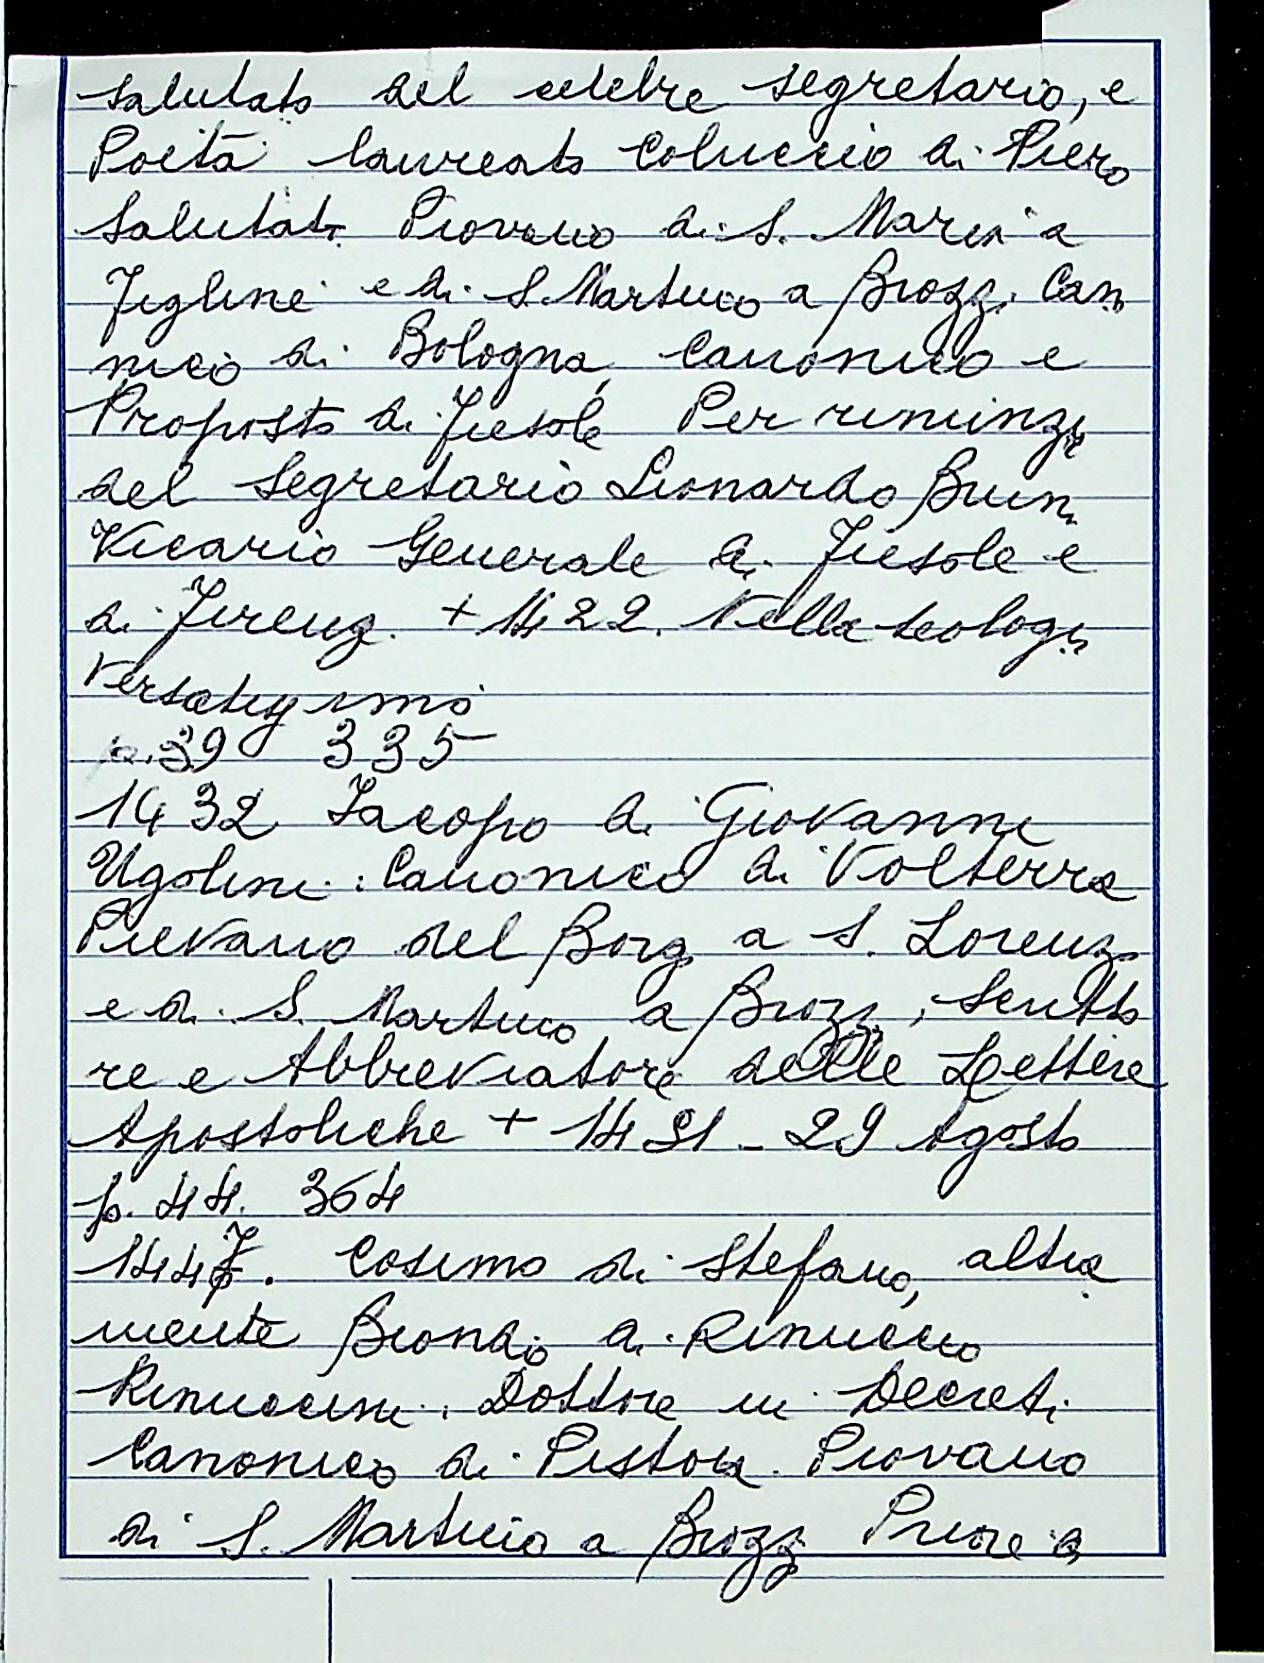 salutato del celebre segretario, e
Poeta laureato Coluccio di Piero
Salutati Piovano di S. Maria a
Figline e di S. Martino a Brozzi, Cano
nico di Bologna, Canonico e
Proposto di Fiesole Per rinunzia
del Segretario Lionardo Bruni
Vicario Generale di Fiesole e
di Firenze. + 1422. Nella teologia
Versatissimo
p. 39 335
1432 Jacopo di Giovanni
Ugolini. Canonico di Volterra
Pievano del Borgo a S. Lorenzo
e di S. Martino a Brozzi, Scritto
re e Abbreviatore delle Lettere
Apostoliche + 1491 - 29 Agosto
p. 44. 364
1447. Cosimo di Stefano, altra
mente Biondo di Rinuccio
Rinuccini. Dottore in Decreti
Canonico di Pistoia. Piovano
di S. Martino a Brozzi Priore a